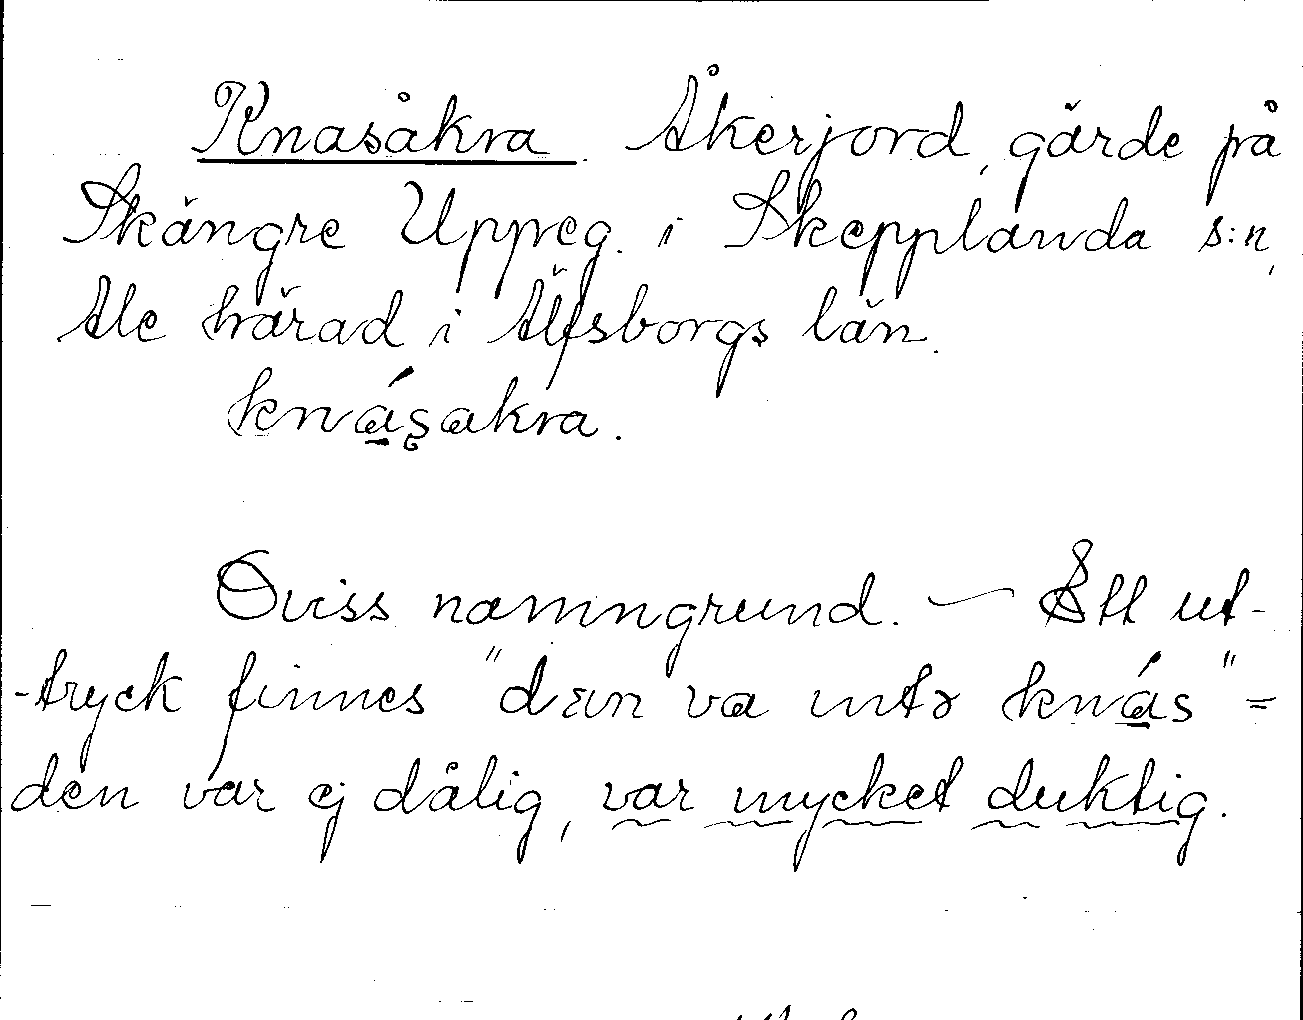 Knasåkra. Åkerjord, gärde på
Skängre Uppeg. i Skepplanda s:n,
Ale härad i Älfsborgs län.
knásakra.
Oviss namngrund. — Ett ut-
-tryck finnes "dæn va intə knás" =
den var ej dålig, var mycket duktig.